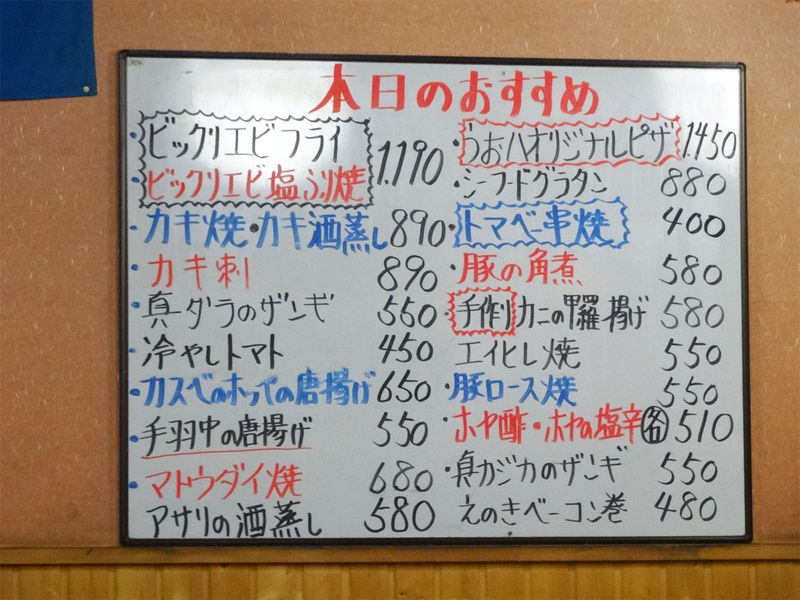 本日のおすすめ
ビックリエビフライ
ビックリエビ塩ふり焼 1.190
・カキ焼・カキ酒蒸し 890
・カキ刺 890
・真ダラのザンギ 550
・冷やしトマト 450
・カスベのホッペの唐揚げ 650
・手羽中の唐揚げ 550
・マトウダイ焼 680
アサリの酒蒸し 580
・うお八オリジナルピザ 1.450
・シーフードグラタン 880
・トマベー串焼 400
・豚の角煮 580
・手作りカニの甲羅揚げ 580
エイヒレ焼 550
・豚ロース焼 550
・ホヤ酢・ホヤの塩辛 各 510
・真カジカのザンギ 550
えのきベーコン巻 480